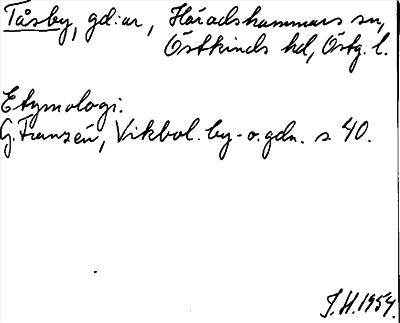 Tåsby, gd:ar, Häradshammars sn,
Östkinds hd, Östg. l.
Etymologi:
G. Franzén, Vikbol. by- o. gdn. s. 40.
J. H. 1954.